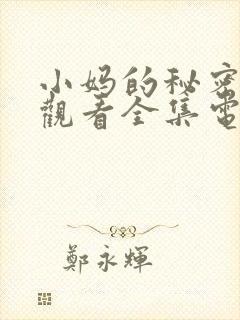 小妈的秘密
觀看全集電
鄭永輝